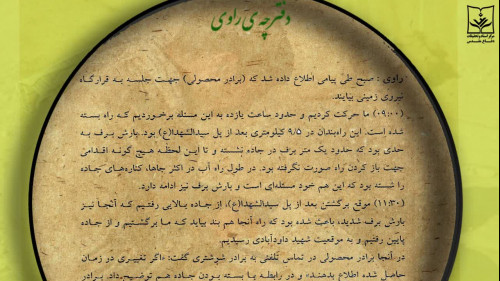 دفترچه‌ی راوی
مرکز اسناد و تحقیقات
دفاع مقدس
راوی : صبح طی پیامی اطلاع داده شد که (برادر محصولی) جهت جلسه به قرارگاه
نیروی زمینی بیایند.
(۰۹:۰۰) ما حرکت کردیم و حدود ساعت یازده به این مسئله برخوردیم که راه بسته
شده است. این راه‌بندان در ۹/۵ کیلومتری بعد از پل سیدالشهدا(ع) بود. بارش برف به
حدی بود که حدود یک متر برف در جاده نشسته و تا این لحظه هیچ گونه اقدامی
جهت باز کردن راه صورت نگرفته بود. در طول راه آب در اکثر جاها، کناره‌های جاده
را شسته بود که این هم خود مسئله‌ای است و بارش برف نیز ادامه دارد.
(۱۱:۳۰) موقع برگشتن بعد از پل سیدالشهدا(ع)، از جاده بالایی رفتیم که آنجا نیز
بارش برف شدید، باعث شده بود که راه آنجا هم بند بیاید که ما برگشتیم و از جاده
پایین رفتیم و به موقعیت شهید داودآبادی رسیدیم.
در آنجا برادر محصولی در تماس تلفنی به برادر شوشتری گفت: «اگر تغییری در زمان
حاصل شده اطلاع بدهند» و در رابطه با بسته بودن جاده هم توضیح داد. برادر